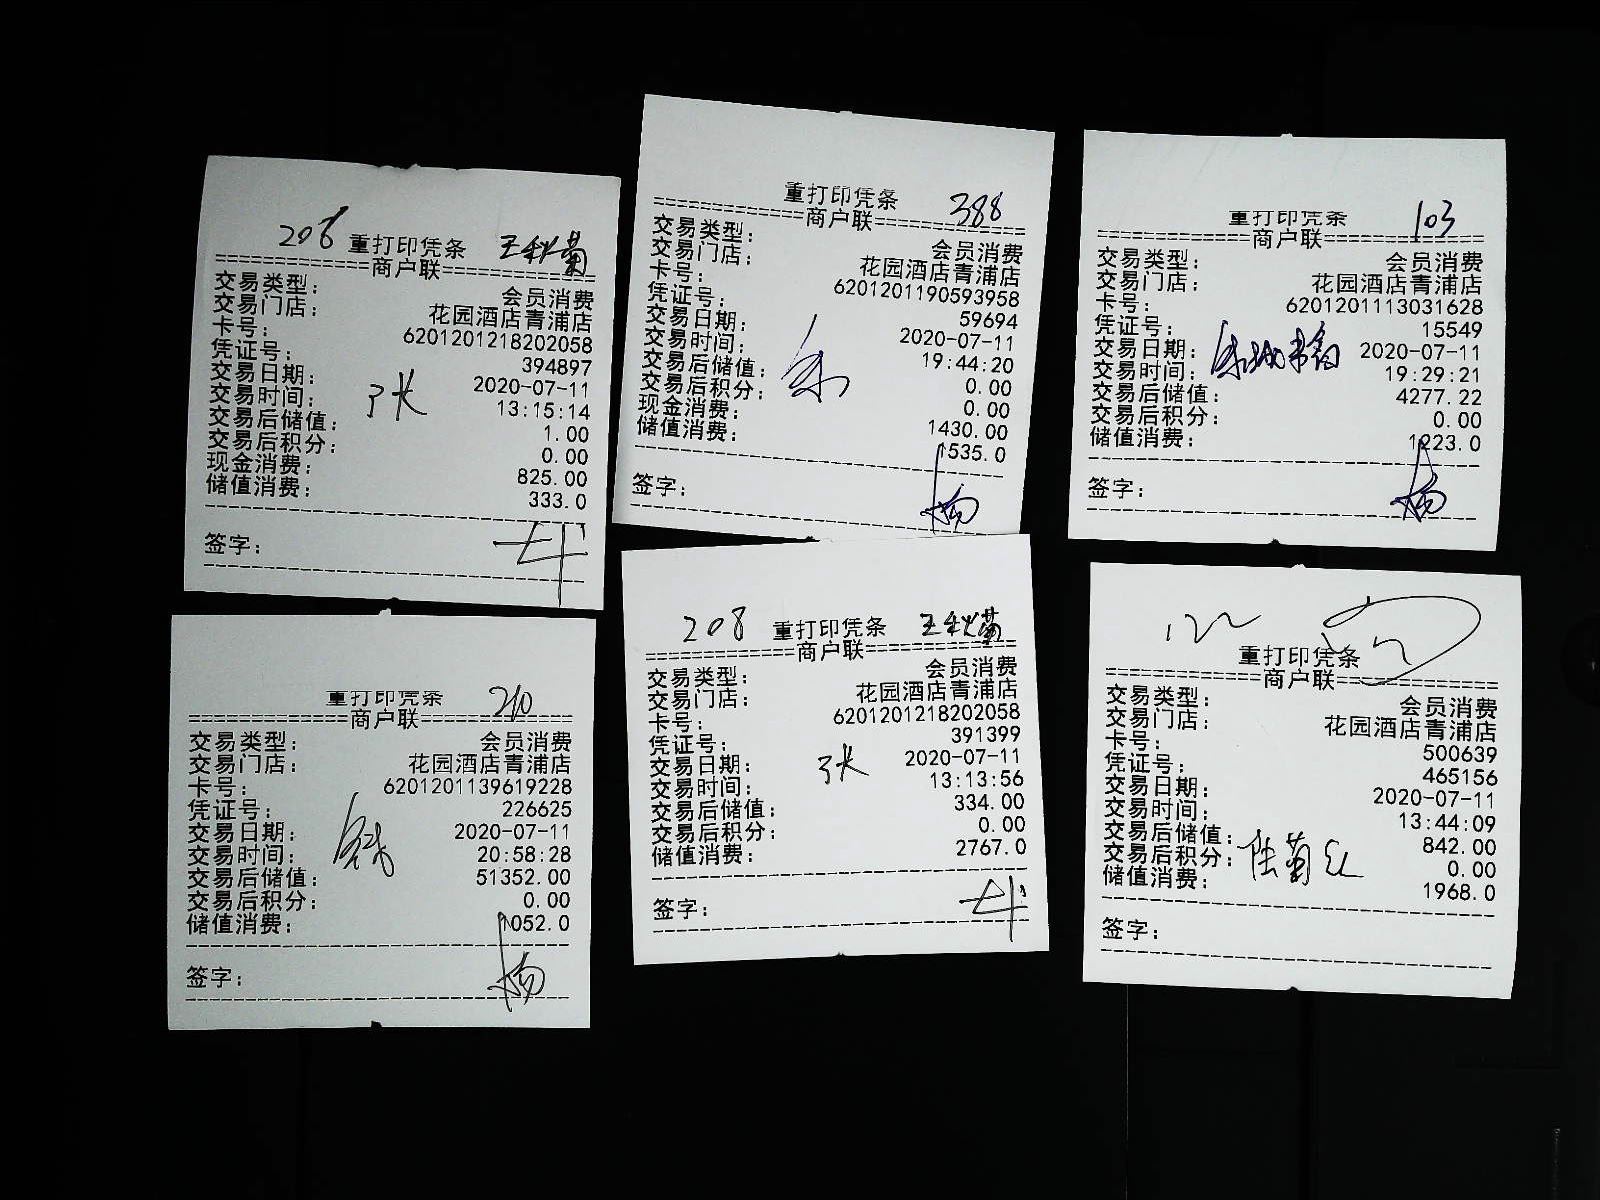 206 重打印凭条 王秋菊
==============商户联==============
交易类型： 会员消费
交易门店： 花园酒店青浦店
卡号： 6201201218202058
凭证号： 394897
交易日期： 2020-07-11
交易时间： 13:15:14
张
交易后储值： 1.00
交易后积分： 0.00
现金消费： 825.00
储值消费： 333.0
签字：
重打印凭条 388
==============商户联==============
交易类型： 会员消费
交易门店： 花园酒店青浦店
卡号： 6201201190593958
凭证号： 59694
交易日期： 2020-07-11
交易时间： 19:44:20
交易后储值： 0.00
交易后积分： 0.00
现金消费： 1430.00
储值消费： 1535.0
签字： 杨
重打印凭条 103
==============商户联==============
交易类型： 会员消费
交易门店： 花园酒店青浦店
卡号： 6201201113031628
凭证号： 15549
交易日期： 2020-07-11
交易时间： 19:29:21
交易后储值： 4277.22
交易后积分： 0.00
储值消费： 1223.0
签字： 杨
重打印凭条 210
==============商户联==============
交易类型： 会员消费
交易门店： 花园酒店青浦店
卡号： 6201201139619228
凭证号： 226625
交易日期： 2020-07-11
交易时间： 20:58:28
交易后储值： 51352.00
交易后积分： 0.00
储值消费： 1052.0
签字： 杨
208 重打印凭条 王秋菊
==============商户联==============
交易类型： 会员消费
交易门店： 花园酒店青浦店
卡号： 6201201218202058
凭证号： 391399
交易日期： 2020-07-11
张
交易时间： 13:13:56
交易后储值： 334.00
交易后积分： 0.00
储值消费： 2767.0
签字：
122
重打印凭条
==============商户联==============
交易类型： 会员消费
交易门店： 花园酒店青浦店
卡号： 500639
凭证号： 465156
交易日期： 2020-07-11
交易时间： 13:44:09
交易后储值： 842.00
交易后积分： 陆菊红 0.00
储值消费： 1968.0
签字：